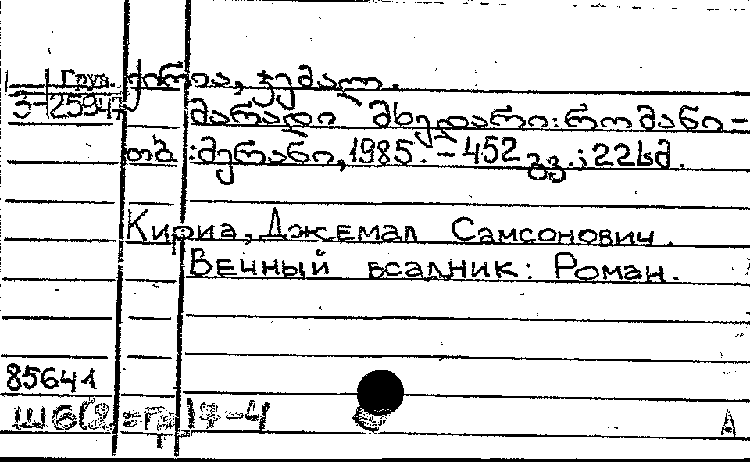 Груз. ქირია, ჯემალ.
3-2594 მარადი მხედარი: რომანი -
თბ.: მერანი, 1985. - 452 გვ.; 22სმ.
Кириа, Джемал Самсонович.
Вечный всадник: Роман.
85641
Ш6(2=Гр)7-4
А